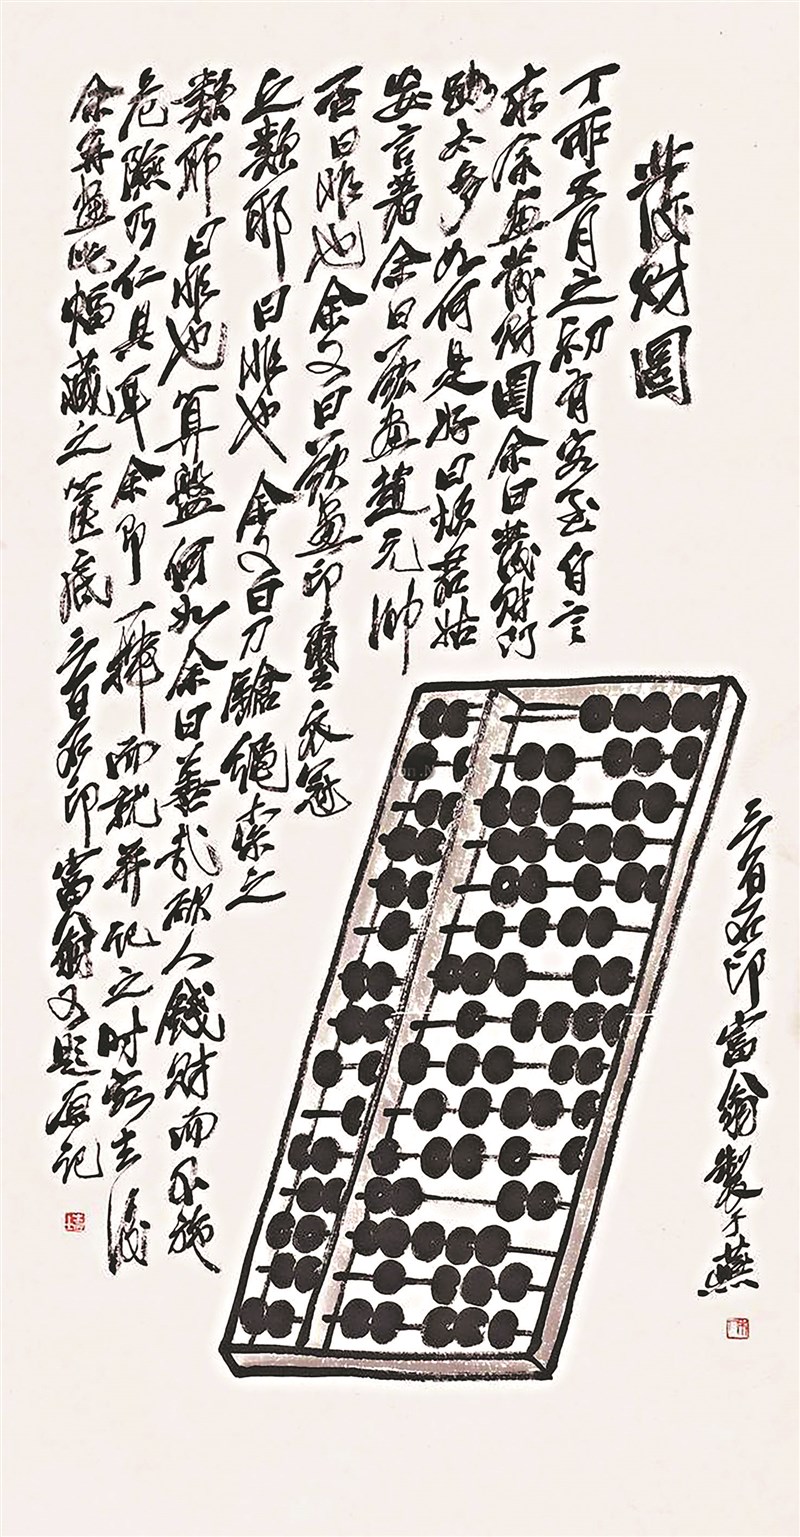 發財圖
丁卯五月之初有客至自言
求余畫發財圖余曰發財門
路太多如何是好曰煩君姑
妄言著余曰欲畫趙元帥
否曰非也余又曰欲畫印璽衣冠
之類耶曰非也余又曰刀鎗繩索之
類耶曰非也算盤何如余曰善哉欲人錢財而不施
危險乃仁具耳余即一揮而就并記之時客去後
余再畫此幅藏之篋底三百石印富翁又題原記
三百石印富翁製于燕